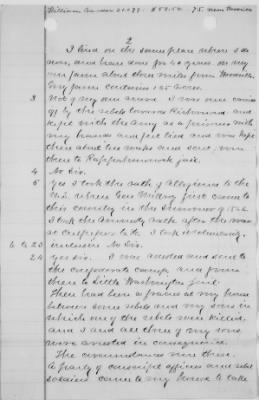 William 21077 $50.50 75 New
2
I lived on the same place where I do
now, and have done for 40 years on my
own farm about three miles from
My farm contains 125 acres.
3 Not of my own accord. I was once carried
off by the rebels towards Richmond and
kept with the Army as a prisoner with
my hands and feet tied and was kept
there about two weeks and sent
then to Rappahannock jail.
4 No Sir.
5 Yes I took the oath of allegiance to the
U.S. when Gen. first came to
this country in the Summer of 1862.
I took the amnesty oath after the war
at I took it voluntarily.
6 to 23 inclusive No Sir.
24 Yes Sir. I was arrested and sent to
the confederate camp and from
there to Little Washington Jail.
There had been a at my house
between some rebels and my sons in
which one of the rebels was killed,
and I and all three of my sons
were arrested in consequence.
The circumstances were these.
A party of conscript officers and rebel
soldiers came to my house to take